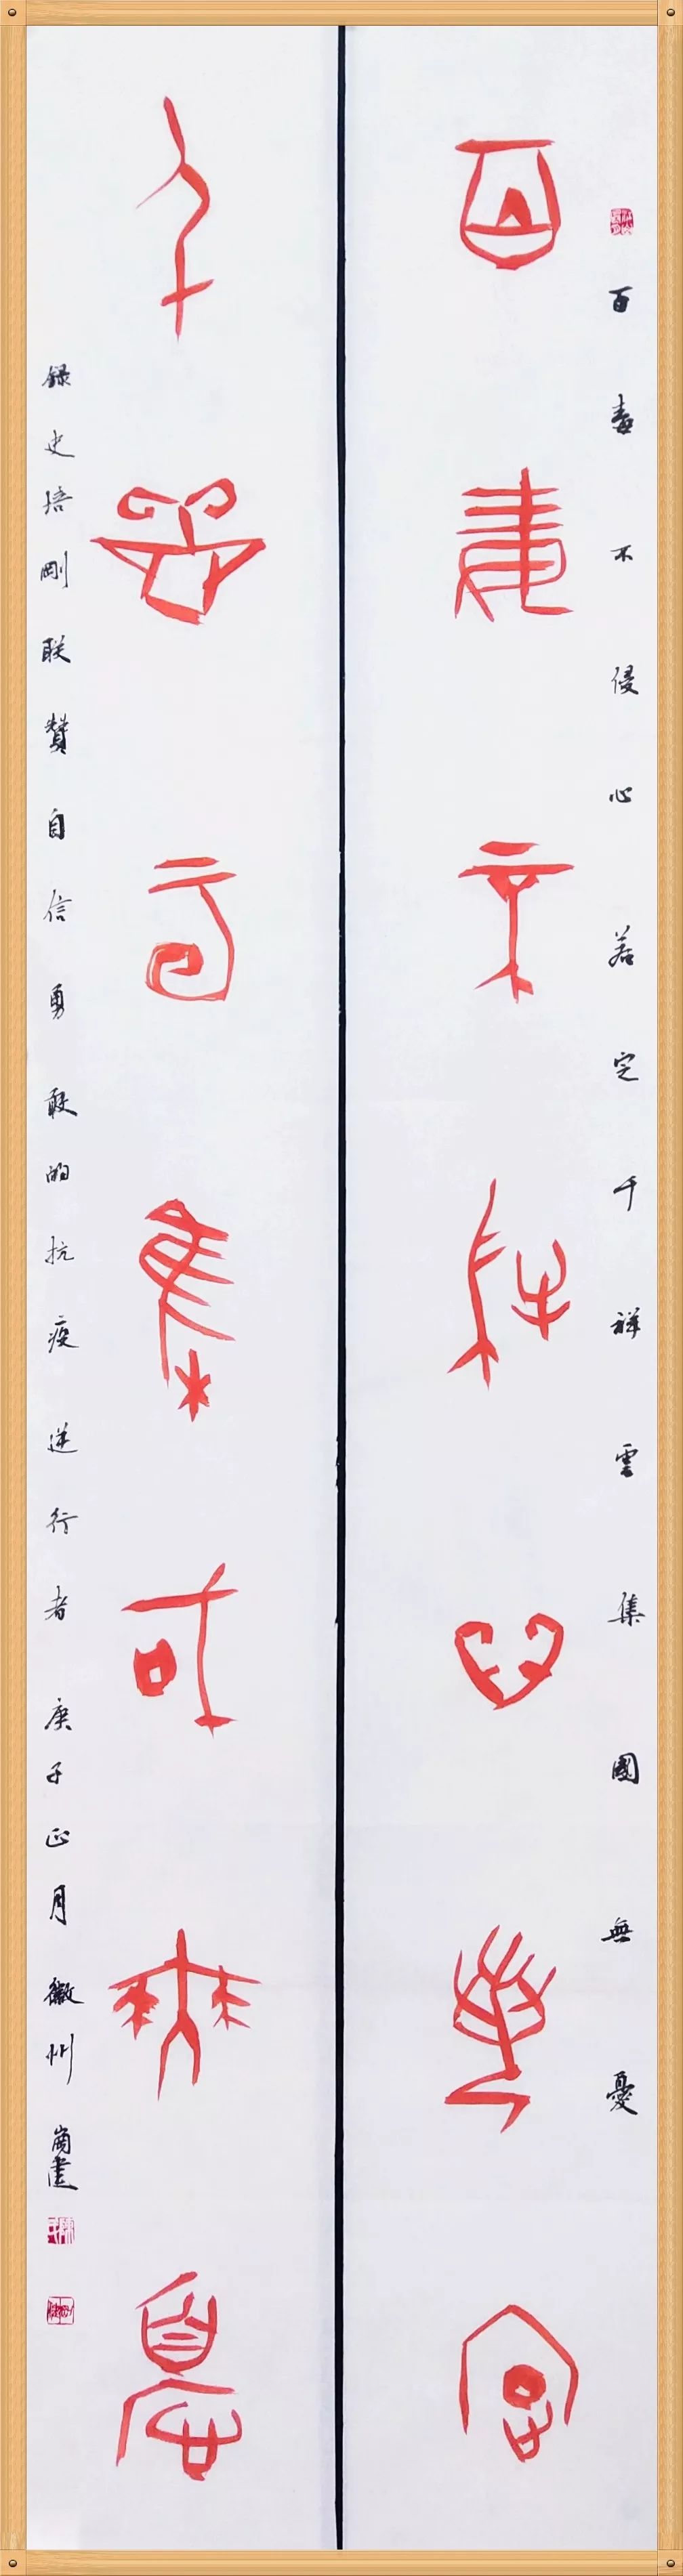 百毒不侵心若定
千祥雲集國無憂
百毒不侵心若定千祥雲集國無憂
録史培剛联贊自信勇敢的抗疫逆行者庚子正月徽州